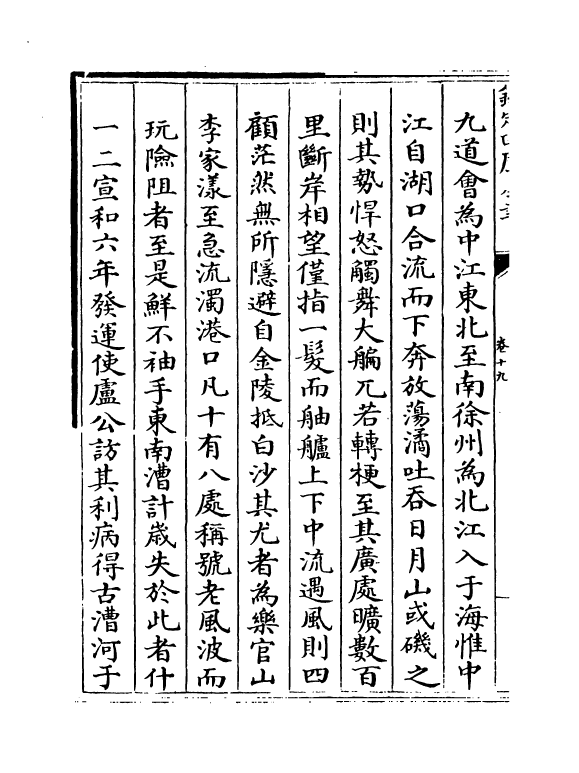 九道會為中江東北至南徐州為北江入于海惟中
江自湖口合流而下奔放蕩潏吐吞日月山或磯之
則其勢悍怒觸舞大艑兀若轉梗至其廣處曠數百
里斷岸相望僅指一髮而舳艫上下中流遇風則四
顧茫然無所隱避自金陵抵白沙其尤者為樂官山
李家漾至急流濁港口凡十有八處稱號老風波而
玩險阻者至是鮮不袖手東南漕計歲失於此者什
一二宣和六年發運使盧公訪其利病得古漕河于
卷十九